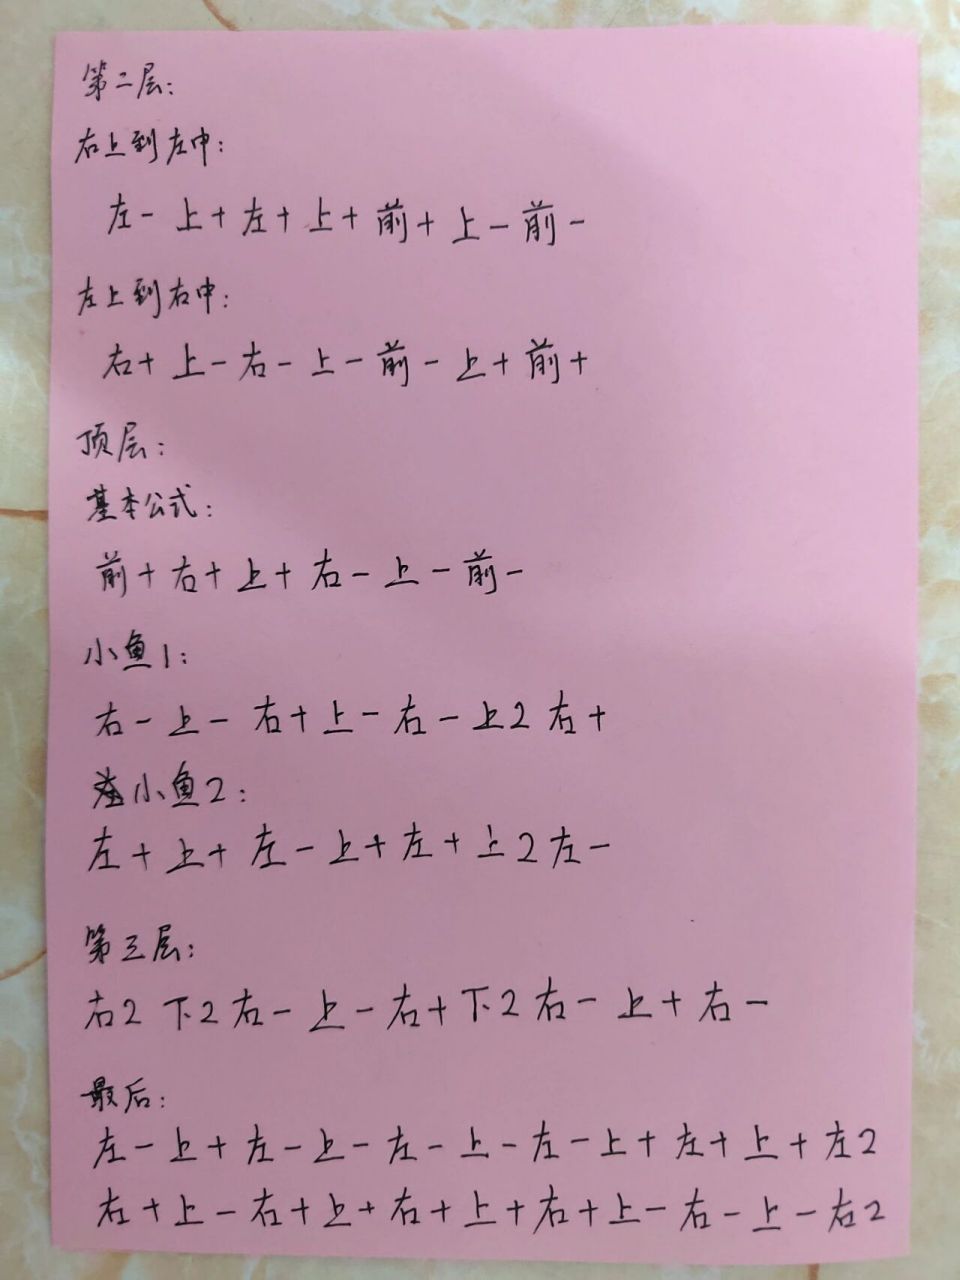 第二层:
右上到左中:
左- 上+ 左+ 上+ 前+ 上- 前-
左上到右中:
右+ 上- 右- 上- 前- 上+ 前+
顶层:
基本公式:
前+ 右+ 上+ 右- 上- 前-
小鱼1:
右- 上- 右+ 上- 右- 上2 右+
小鱼2:
左+ 上+ 左- 上+ 左+ 上2 左-
第三层:
右2 下2 右- 上- 右+ 下2 右- 上+ 右-
最后:
左- 上+ 左- 上- 左- 上- 左- 上+ 左+ 上+ 左2
右+ 上- 右+ 上+ 右+ 上+ 右+ 上- 右- 上- 右2